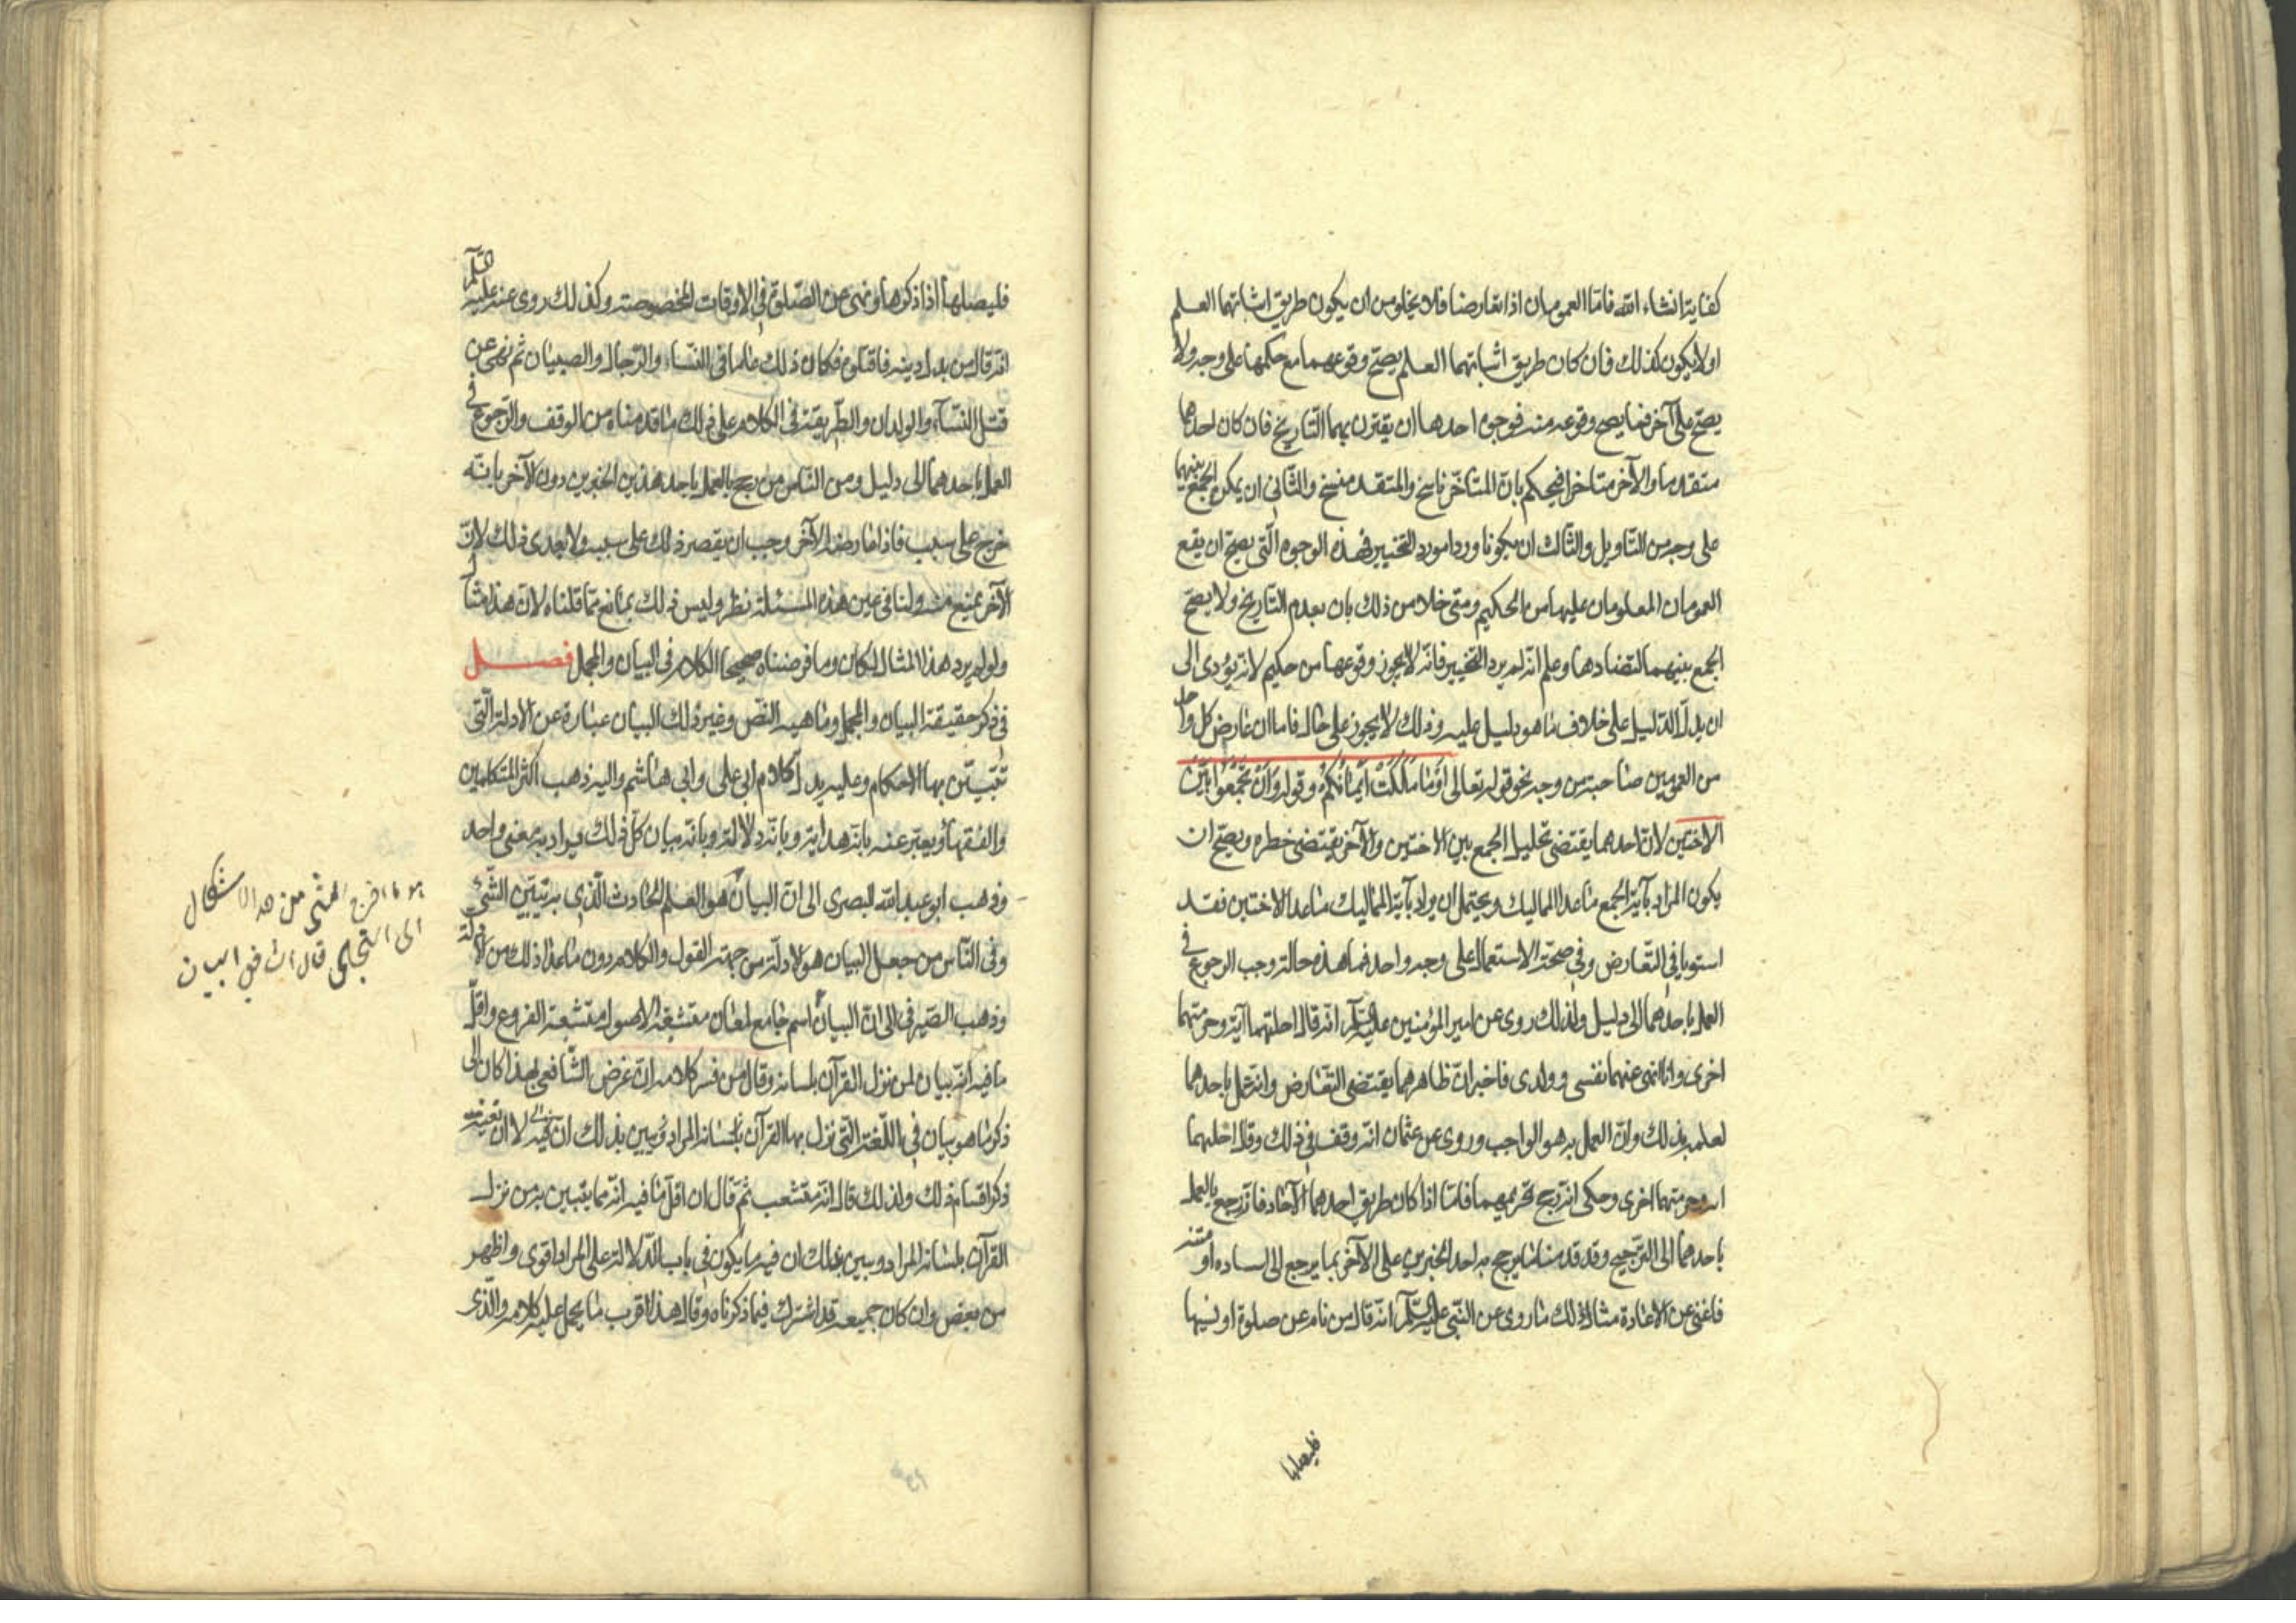 كفاية انشاء الله فامّا العمومان اذا تعارضا فلا يخلو من ان يكون طريق اثباتهما العلم
اولا يكون كذلك فان كان طريق اثباتهما العلم يصحّ وقوعهما مع حكمها على وجه ولا
يصحّ على آخر فما يصح وقوعه منه فوجوه احدها ان يقترن بهما التّاريخ فان كان احدهما
متقدما والآخر متاخرا فيحكم بانّ المتاخّر ناسخ والمتقدم منسخ والثّانى ان يمكن الجمع بينهما
على وجه من التّاويل والثّالث ان يكونا وردا مورد التخيير فهذه الوجوه الّتى يصحّ ان يقع
العمومان المعلومان عليها من الحكيم ومتى خلا من ذلك بان يعدم التاريخ ولا يصحّ
الجمع بينهما لتضادهما وعلم انّه لم يرد التّخيير فانّه لا يجوز وقوعها من حكيم لانّه يؤدى الى
ان يدلّ الدّليل على خلاف ما هو دليل عليه وذلك لا يجوز على حال فاما ان عارض كل واحد
من العمومين صاحبه من وجه نحو قوله تعالى اَوْ مَا مَلَكَتْ اَيْمَانُكُمْ وقوله وَاَنْ تَجْمَعُوا بَيْنَ
الاختين لانّ احدهما يقتضى تحليل الجمع بين الاختين والآخر يقتضى خطره ويصحّ ان
يكون المراد بآية الجمع ماعدا المماليك ويحتمل ان يراد بآية المماليك ماعدا الاختين فقد
استويا فى التّعارض وفى صحّة الاستعمال على وجه واحد فما هذه حاله وجب الرجوع فى
العمل باحدهما الى دليل ولذلك روى عن امير المؤمنين عليه السّلم انّه قال احلتهما آية وحرمتهما
اخرى وانا انهى عنهما نفسى وولدى فاخبر انّ ظاهرهما يقتضى التّعارض وانه عمل باحدهما
لعلمه بذلك وانّ العمل به هو الواجب وروى عن عثمان انّه وقف فى ذلك وقال احلتهما
اية وحرمتهما اخرى وحكى انّه رجح تحريمهما فامّا اذا كان طريق احدهما الآحاد فانّه رجع بالعمل
باحدهما الى التّرجيح وقد قدمنا ما يرجح به احد الخبرين على الآخر بما يرجع الى اسناده او متنه
فاغنى عن الاعادة مثال ذلك ما روى عن النّبى عليه السّلم انّه قال من نام عن صلوة او نسيها
فليصلها
فليصلها اذا ذكرها ونهى عن الصّلوة فى الاوقات المخصوصة وكذلك روى عنه عليه السّلم
انّه قال من بدل دينه فاقتلوه فكان ذلك عاما فى النّساء والرّجال والصبيان ثم نهى عن
قتل النّسآء والولدان والطّريقة فى الكلام على ذلك ما قدمناه من الوقف والرّجوع فى
العمل باحدهما الى دليل ومن النّاس من رجح بالعمل باحد هذين الخبرين دون الآخر بانّه
خرج على سبب فاذا عارضه الآخر وجب ان يقصر ذلك على سببه ولا يعدى ذلك لانّ
الآخر يمنع منه ولنا فى عين هذه المسئلة نظر وليس ذلك بمانع ممّا قلناه لانّ هذا مثال
ولو لم يرد هذا المثال لكان وما فرضناه صحيحا الكلام فى البيان والمجمل فصل
فى ذكر حقيقة البيان والمجمل وماهية النّص وغير ذلك البيان عبارة عن الادلة الّتى
تتبيّن بها الاحكام وعليه يدلّ كلام ابى على وابى هاشم واليه ذهب اكثر المتكلمين
والفقهآء ويعبّر عنه بانّه هداية وبانّه دلالة وبانّه بيان كلّ ذلك يراد به معنى واحد
وذهب ابو عبد الله البصرى الى انّ البيان هو العلم الحادث الّذى به يتبيّن الشّئ
وفى النّاس من جعل البيان هو الادلّة من جهة القول والكلام دون ماعدا ذلك من الادلّة
وذهب الصّيرفى الى انّ البيان اسم جامع لمعان متشعّبة الاصول متشعبة الفروع واقلّ
ما فيه انّه بيان لمن نزل القرآن بلسانه وقال من فسر كلامه انّ غرض الشّافعى بهذا كان الى
ذكر ما هو بيان فى اللّغة الّتى نزل بها القرآن بلسانه المراد ويبين بذلك ان لا ان
ذكر اقسام ذلك ولذلك قال انّه متشعب ثمّ قال ان اقلّ ما فيه انّه مما يتبين به من نزل
القرآن بلسانه المراد ويبين بذلك ان فيه ما يكون فى باب الدّلالة على المراد اقوى واظهر
من بعض وان كان جميعه قد اشترك فيما ذكرناه وقال هذا اقرب ما يحمل عليه كلامه والّذى
من هذا الاشكال
الى التجلى قال فى البيان